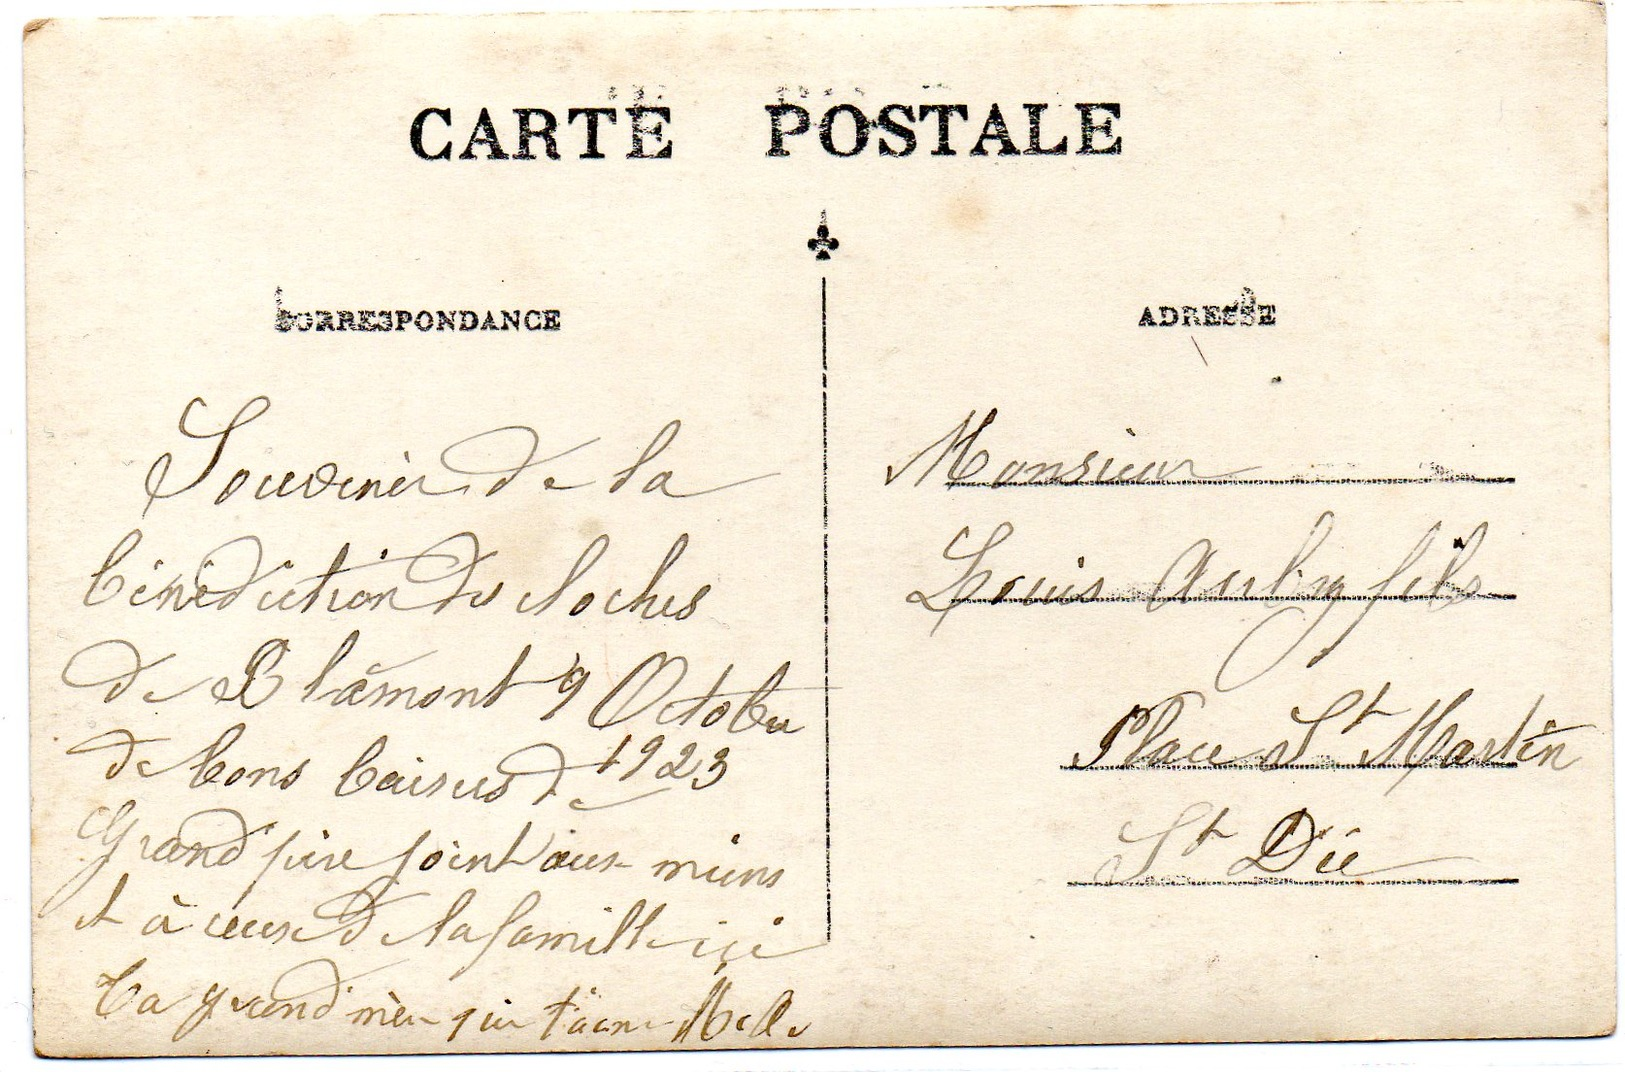 CARTE POSTALE
CORRESPONDANCE
Souvenir de la
bénédiction des cloches
de Blâmont 9 Octobre
1923
de bons baisers de
Grand père joint aux miens
et à ceux de la famille içi
Ta grand mère qui t'aime
ADRESSE
Monsieur
Louis Aubry fils
Place St Martin
St Dié